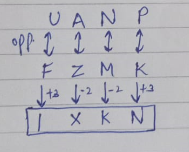 U A N P
opp. ↕ ↕ ↕ ↕
F Z M K
↓+3 ↓-2 ↓-2 ↓+3
I X K N